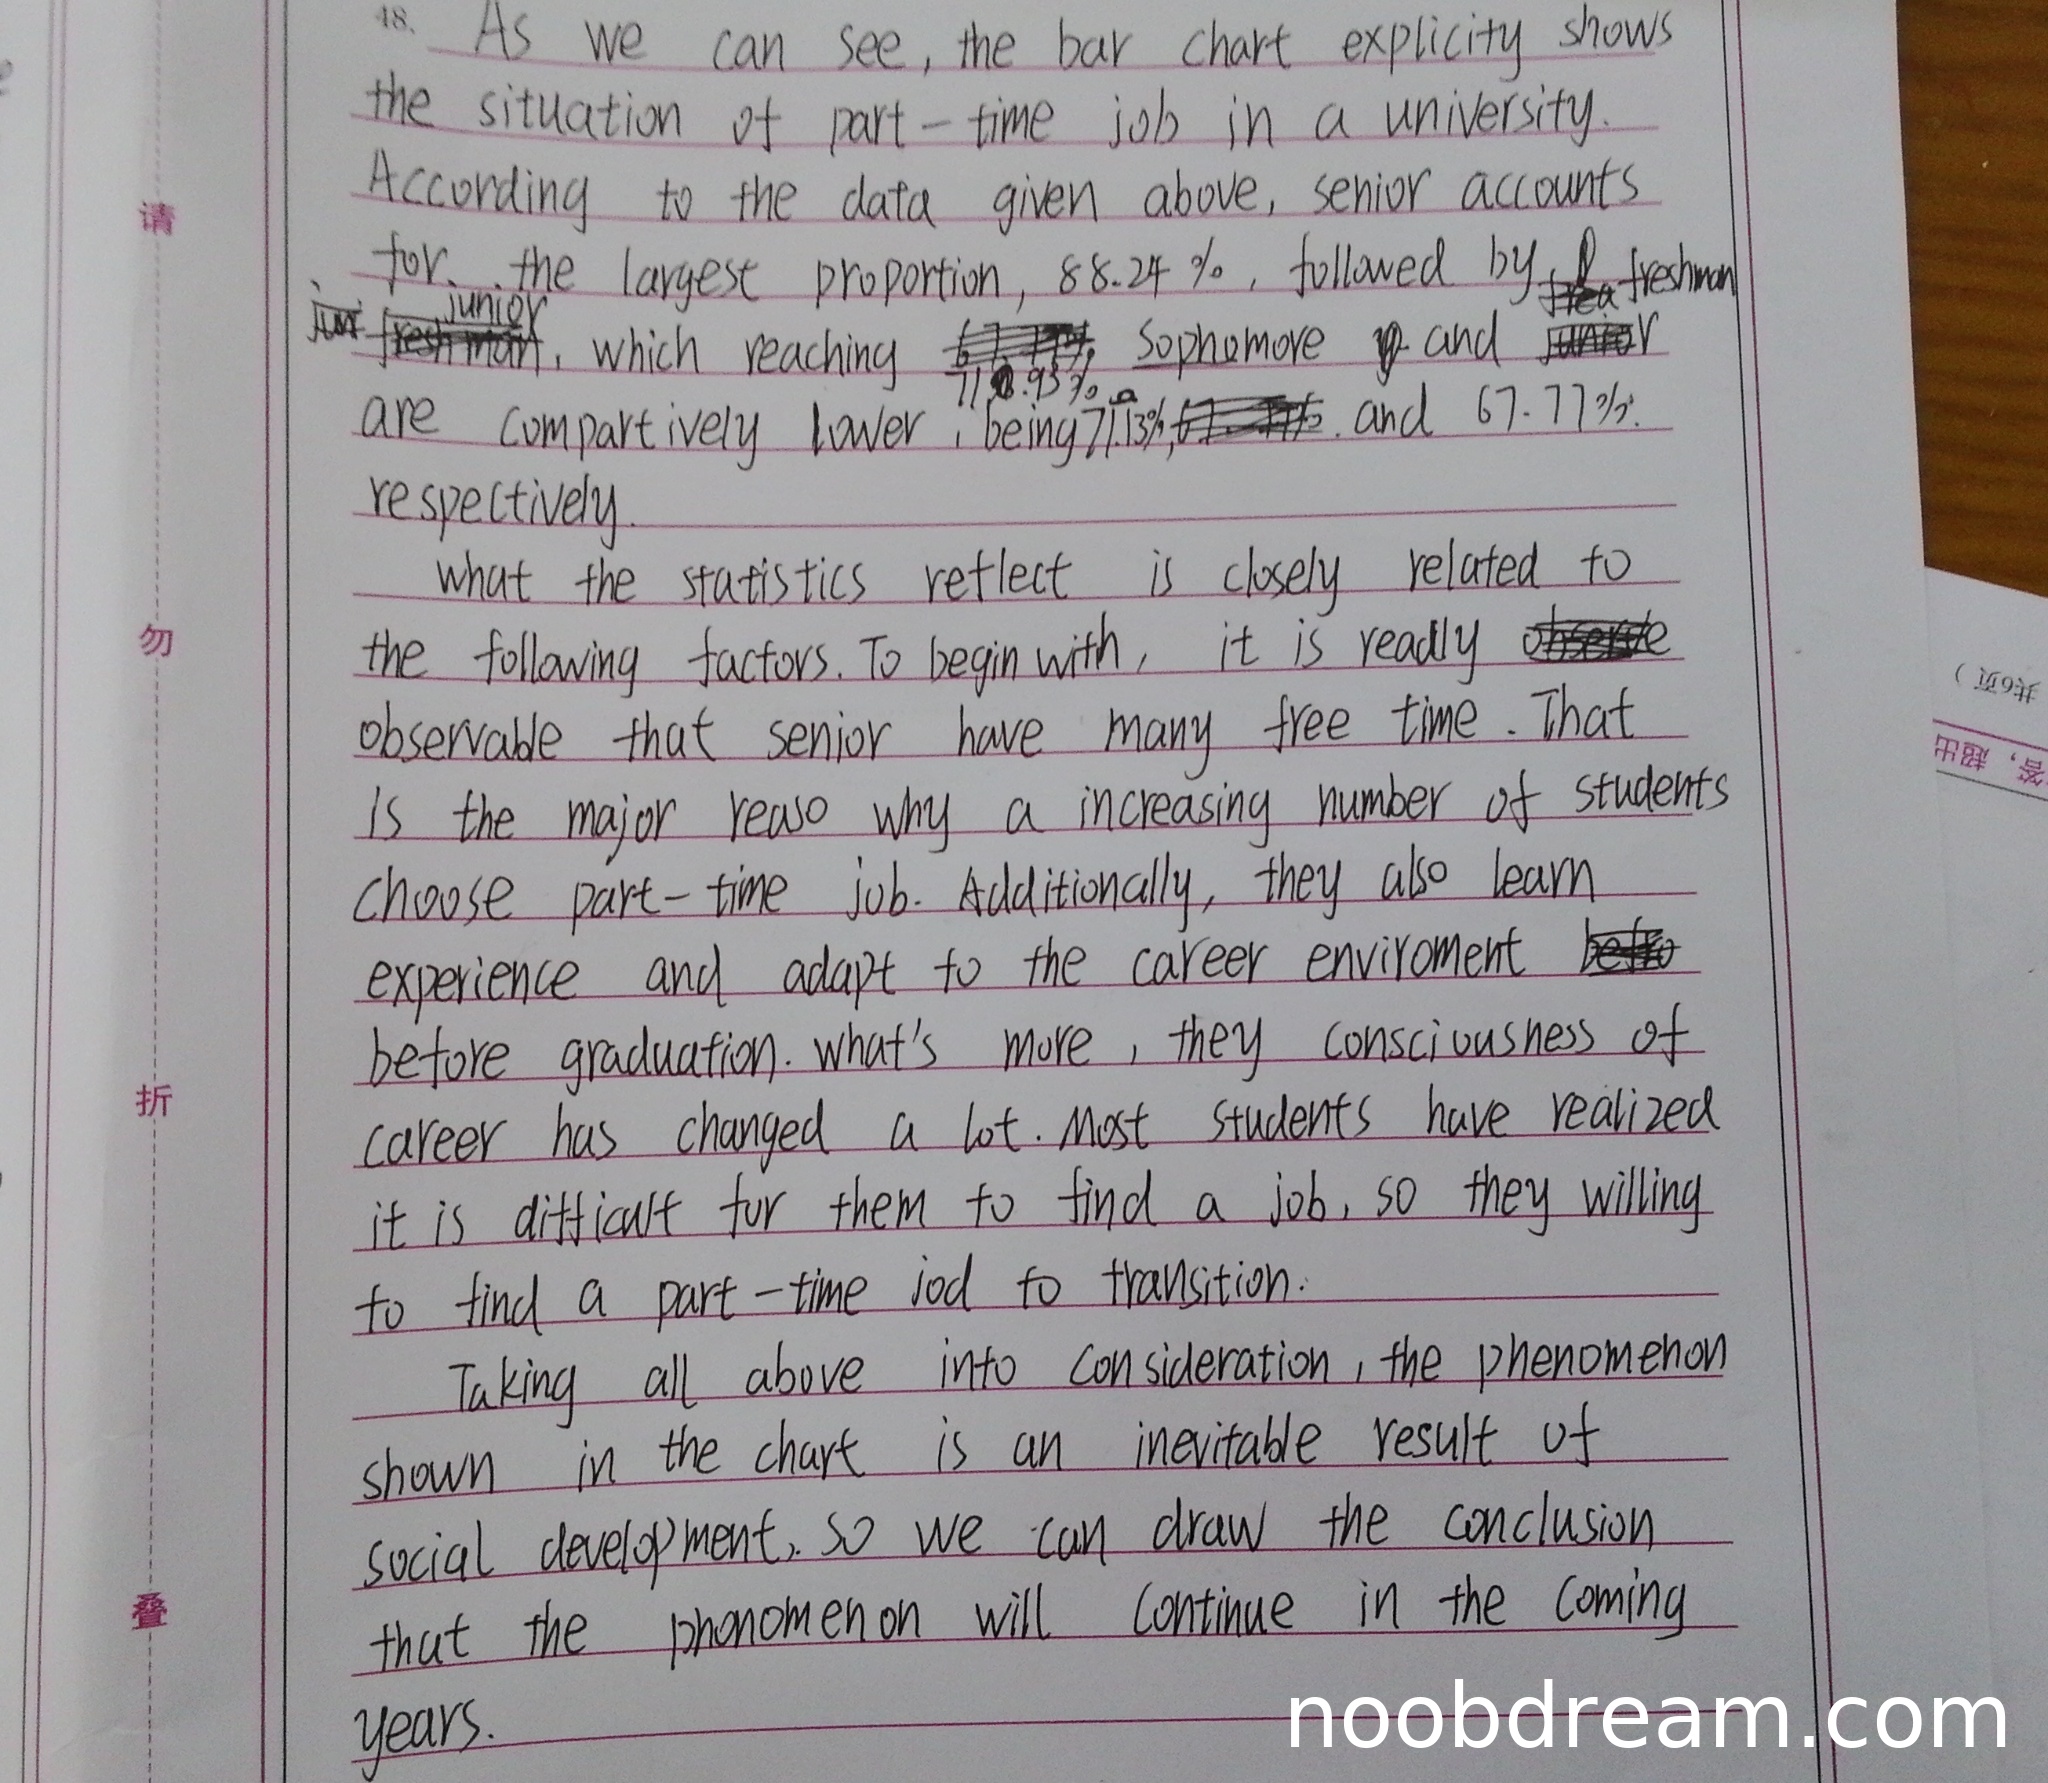 48. As we can see, the bar chart explicity shows
the situation of part-time job in a university.
According to the data given above, senior accounts
for the largest proportion, 88.24%, followed by freshman
junior, which reaching 71.93%. Sophomore and junior
are compartively lower, being 71.13%, and 67.77%.
respectively.
What the statistics reflect is closely related to
the following factors. To begin with, it is readly
observable that senior have many free time. That
is the major reaso why a increasing number of students
choose part-time job. Additionally, they also learn
experience and adapt to the career enviroment
before graduation. what's more, they consciousness of
career has changed a lot. Most students have realized
it is difficult for them to find a job, so they willing
to find a part-time jod to transition.
Taking all above into consideration, the phenomenon
shown in the chart is an inevitable result of
social development. so we can draw the conclusion
that the phonomenon will continue in the coming
years.
请
勿
折
叠
共6页）
答，超出
noobdream.com